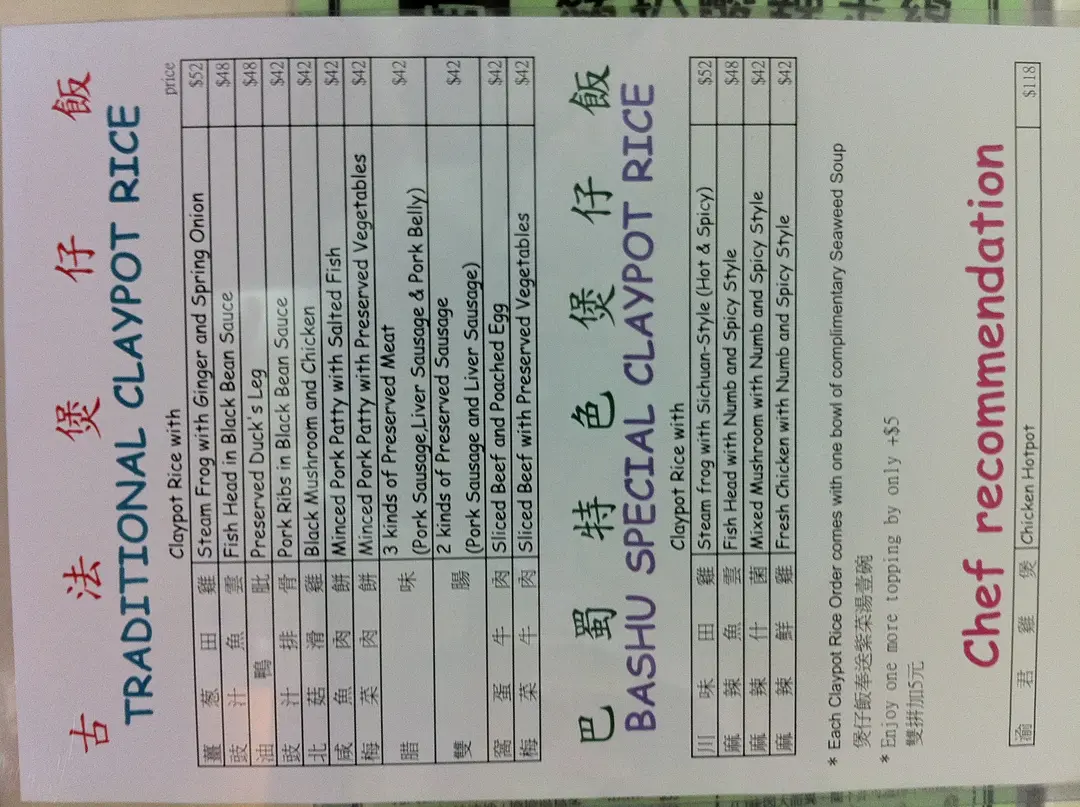 古法煲仔飯
TRADITIONAL CLAYPOT RICE
Claypot Rice with price
薑葱田雞 Steam Frog with Ginger and Spring Onion $52
豉汁魚雲 Fish Head in Black Bean Sauce $48
油鴨肶 Preserved Duck's Leg $48
豉汁排骨 Pork Ribs in Black Bean Sauce $42
北菇滑雞 Black Mushroom and Chicken $42
咸魚肉餅 Minced Pork Patty with Salted Fish $42
梅菜肉餅 Minced Pork Patty with Preserved Vegetables $42
腊味 3 kinds of Preserved Meat $42
(Pork Sausage,Liver Sausage & Pork Belly)
雙腸 2 kinds of Preserved Sausage $42
(Pork Sausage and Liver Sausage)
窩蛋牛肉 Sliced Beef and Poached Egg $42
梅菜牛肉 Sliced Beef with Preserved Vegetables $42
巴蜀特色煲仔飯
BASHU SPECIAL CLAYPOT RICE
Claypot Rice with
川味田雞 Steam frog with Sichuan-Style (Hot & Spicy) $52
麻辣魚雲 Fish Head with Numb and Spicy Style $48
麻辣什菌 Mixed Mushroom with Numb and Spicy Style $42
麻辣鮮雞 Fresh Chicken with Numb and Spicy Style $42
* Each Claypot Rice Order comes with one bowl of complimentary Seaweed Soup
煲仔飯奉送紫菜湯壹碗
* Enjoy one more topping by only +$5
雙拼加5元
Chef recommendation
渝君雞煲 Chicken Hotpot $118